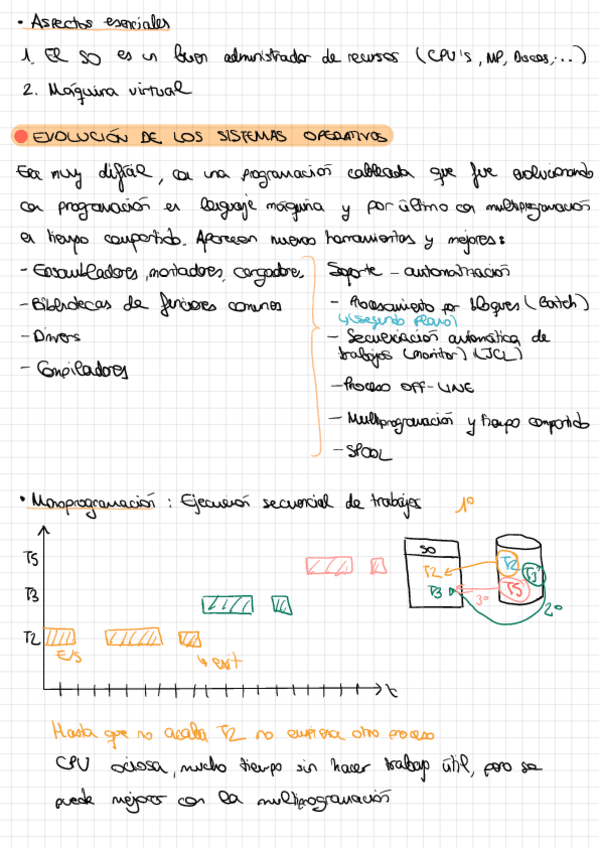 • Aspectos esenciales
1. El SO es un buen administrador de recursos (CPU's, MP, Discos, ...)
2. Máquina virtual
EVOLUCIÓN DE LOS SISTEMAS OPERATIVOS
Era muy difícil, con una programación cableada que fue evolucionando
con programación en lenguaje máquina y por último con multiprogramación
en tiempo compartido. Aparecen nuevas herramientas y mejores:
- Ensambladores, montadores, cargadores
- Bibliotecas de funciones comunes
- Drivers
- Compiladores
Soporte - automatización
- Procesamiento por bloques (batch)
↳(segundo plano)
- Secuenciación automática de
trabajos (monitor) (JCL)
- Proceso OFF-LINE
- Multiprogramación y tiempo compartido
- SPOOL
• Monoprogramación: Ejecución secuencial de trabajos
1º
T5
T3
T2
E/S
↳ exit
t
SO
T2
T3
T2
T3
T5
3º
2º
Hasta que no acaba T2 no empieza otro proceso
CPU ociosa, mucho tiempo sin hacer trabajo útil, pero se
puede mejorar con la multiprogramación